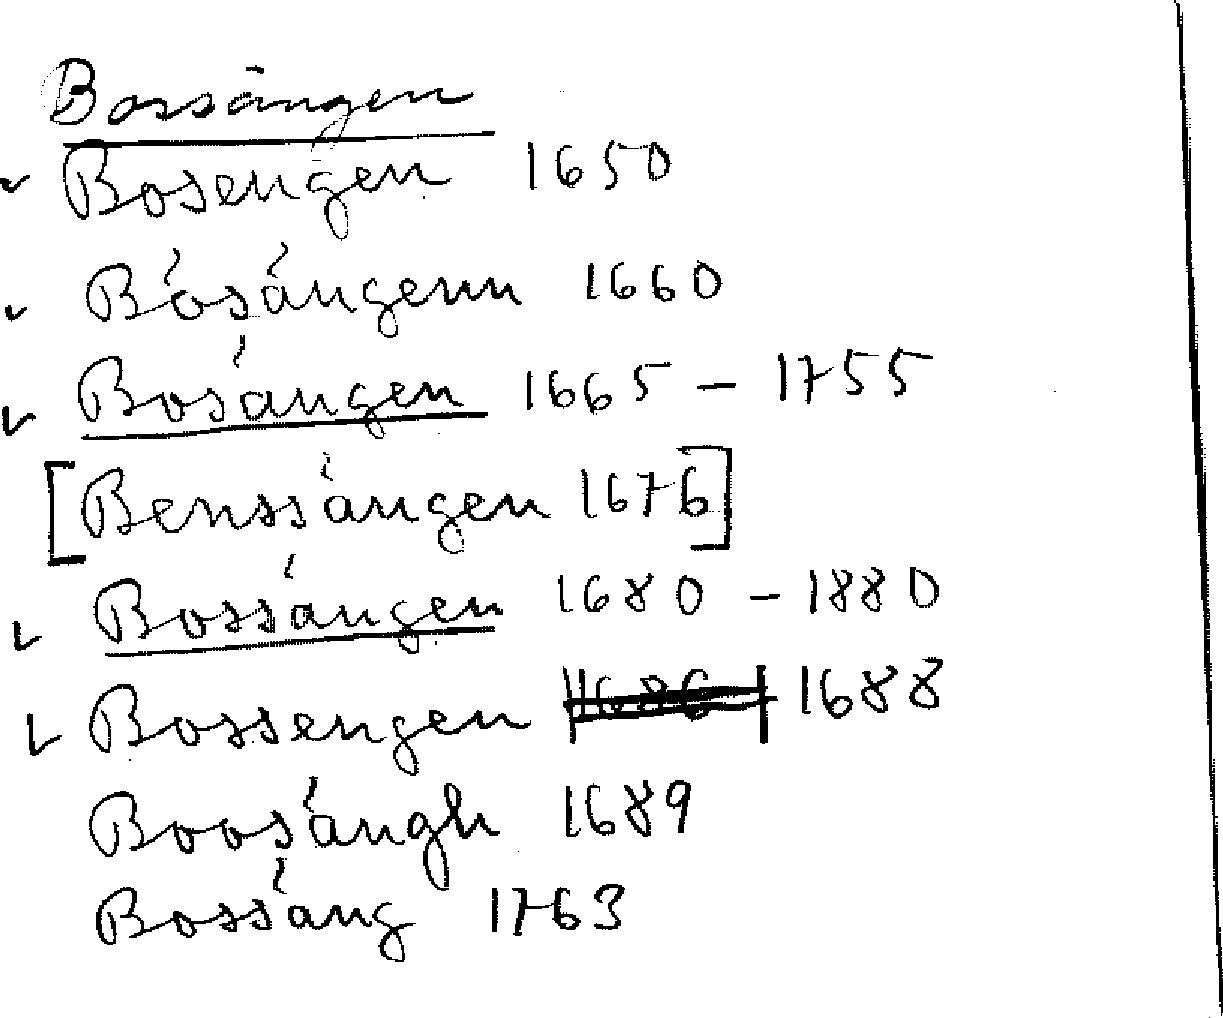 Bossängen
✓ Bosengen 1650
✓ Bösängenn 1660
✓ Bosängen 1665 – 1755
[Benssängen 1676]
✓ Bossängen 1680 – 1880
✓ Bossengen 1688
Boosängh 1689
Bossäng 1763